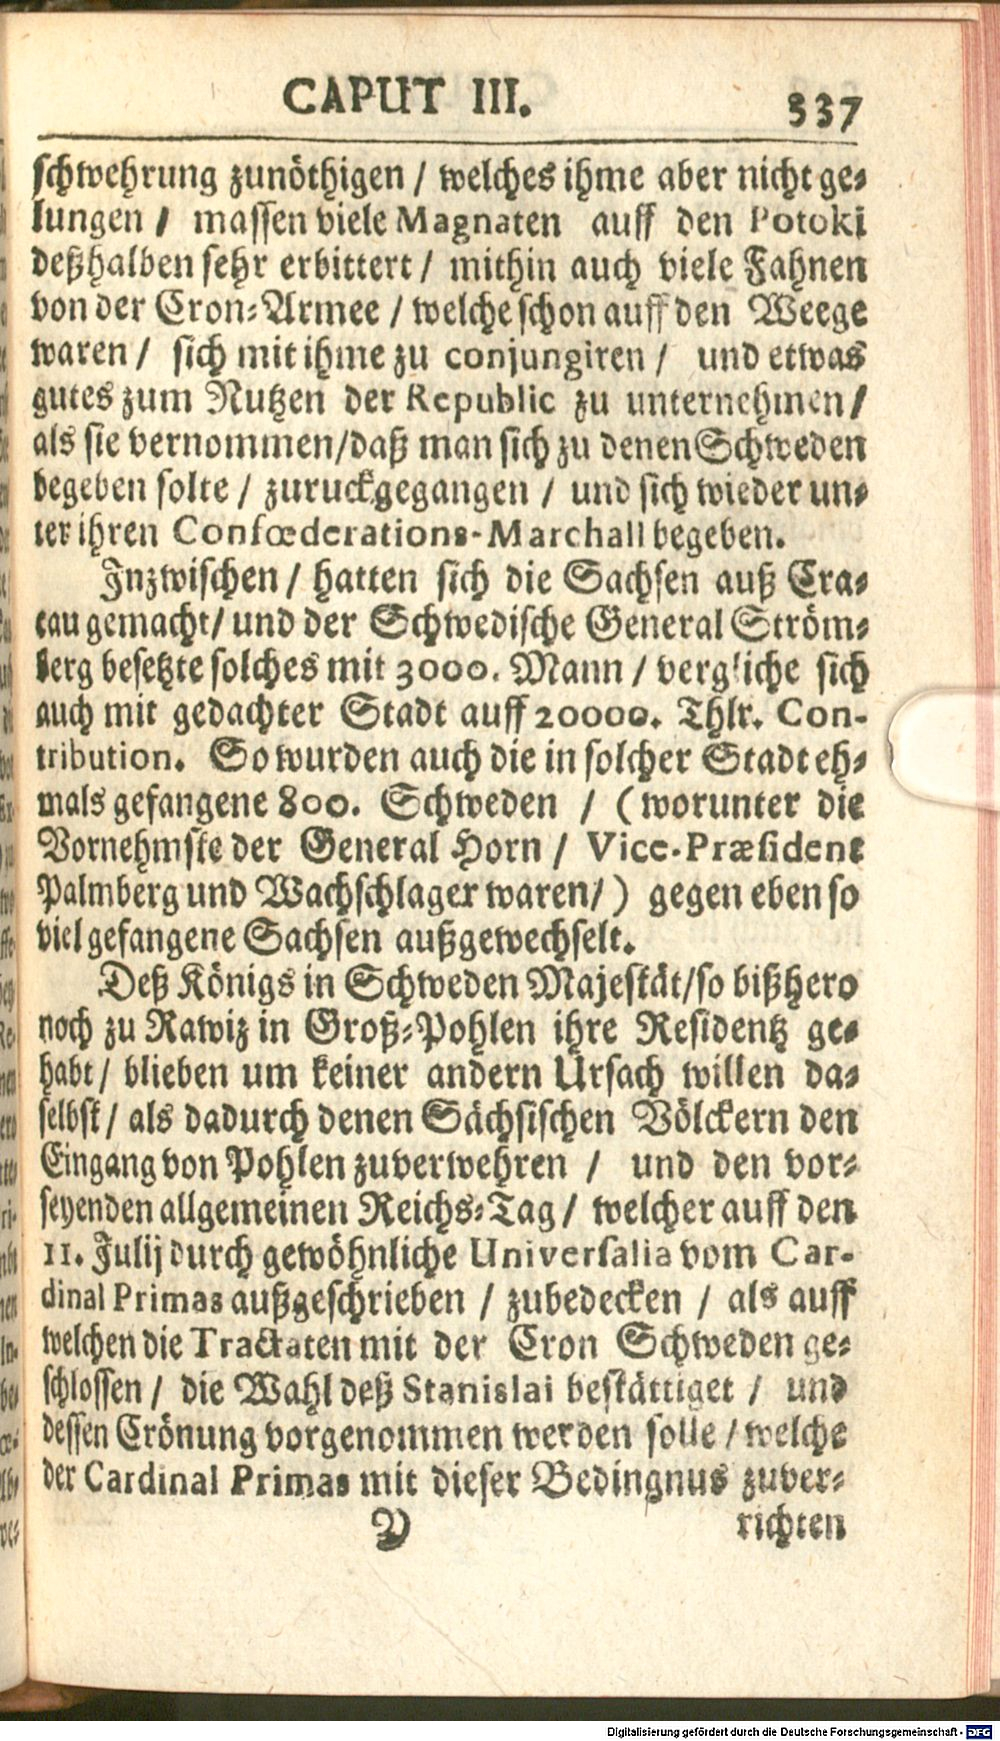 CAPUT III. 337
schwehrung zunöthigen / welches ihme aber nicht ge-
lungen / massen viele Magnaten auff den Potoki
deßhalben sehr erbittert / mithin auch viele Fahnen
von der Cron-Armee / welche schon auff den Weege
waren / sich mit ihme zu conjungiren / und etwas
gutes zum Nutzen der Republic zu unternehmen /
als sie vernommen / daß man sich zu denen Schweden
begeben solte / zuruckgegangen / und sich wieder un-
ter ihren Confœderations-Marchall begeben.
Inzwischen / hatten sich die Sachsen auß Cra-
cau gemacht / und der Schwedische General Ström-
berg besetzte solches mit 3000. Mann / vergliche sich
auch mit gedachter Stadt auff 20000. Thlr. Con-
tribution. So wurden auch die in solcher Stadt eh-
mals gefangene 800. Schweden / (worunter die
Vornehmste der General Horn / Vice-Præsident
Palmberg und Wachschlager waren /) gegen eben so
viel gefangene Sachsen außgewechselt.
Deß Königs in Schweden Majestät / so bißhero
noch zu Rawiz in Groß-Pohlen ihre Residentz ge-
habt / blieben um keiner andern Ursach willen da-
selbst / als dadurch denen Sächsischen Völckern den
Eingang von Pohlen zuverwehren / und den vor-
seyenden allgemeinen Reichs-Tag / welcher auff den
11. Julij durch gewöhnliche Universalia vom Car-
dinal Primas außgeschrieben / zubedecken / als auff
welchen die Tractaten mit der Cron Schweden ge-
schlossen / die Wahl deß Stanislai bestättiget / und
dessen Crönung vorgenommen werden solle / welche
der Cardinal Primas mit dieser Bedingnus zuver-
Y richten
Digitalisierung gefördert durch die Deutsche Forschungsgemeinschaft - DFG